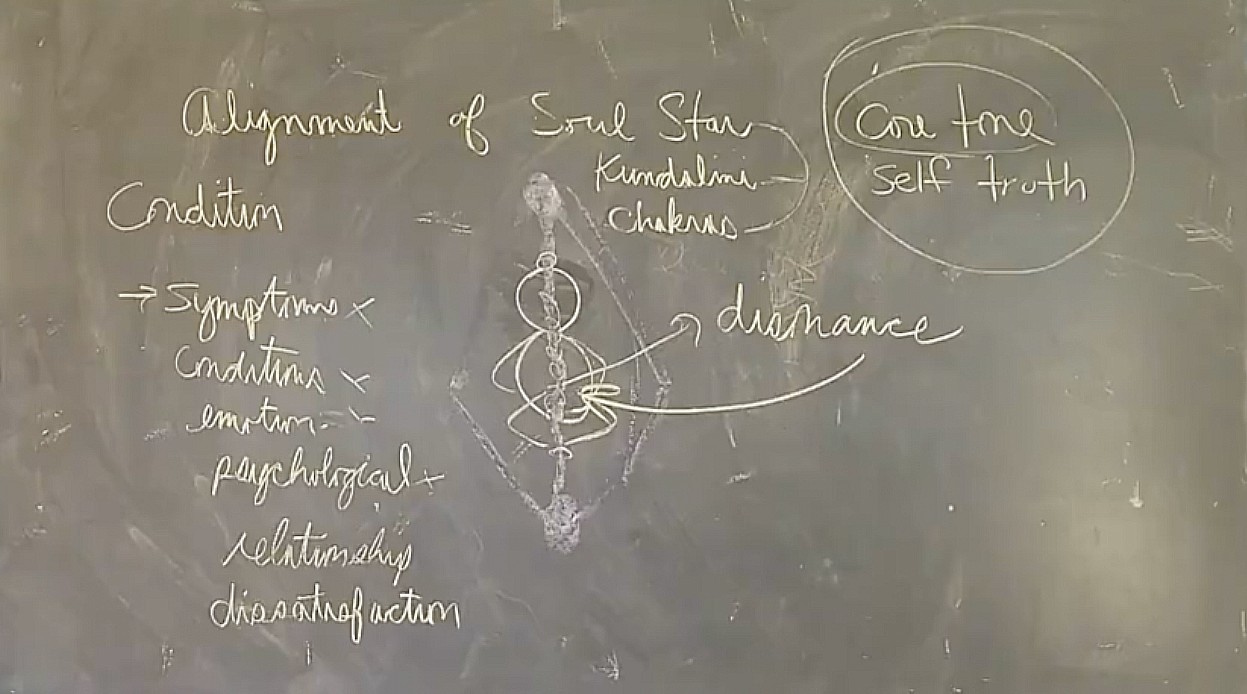 Alignment of Soul Star
Kundalini
Chakras
Core tone
self truth
Condition
→ Symptoms x
Conditions x
emotion - x
psychological x
relationship
dissatisfaction
dissonance